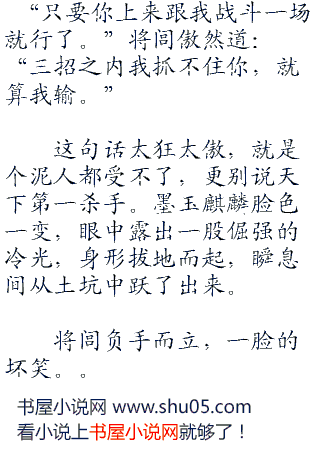 “只要你上来跟我战斗一场
就行了。”将闾傲然道：
“三招之内我抓不住你，就
算我输。”
这句话太狂太傲，就是
个泥人都受不了，更别说天
下第一杀手。墨玉麒麟脸色
一变，眼中露出一股倔强的
冷光，身形拔地而起，瞬息
间从土坑中跃了出来。
将闾负手而立，一脸的
坏笑。。
书屋小说网 www.shu05.com
看小说上书屋小说网就够了！